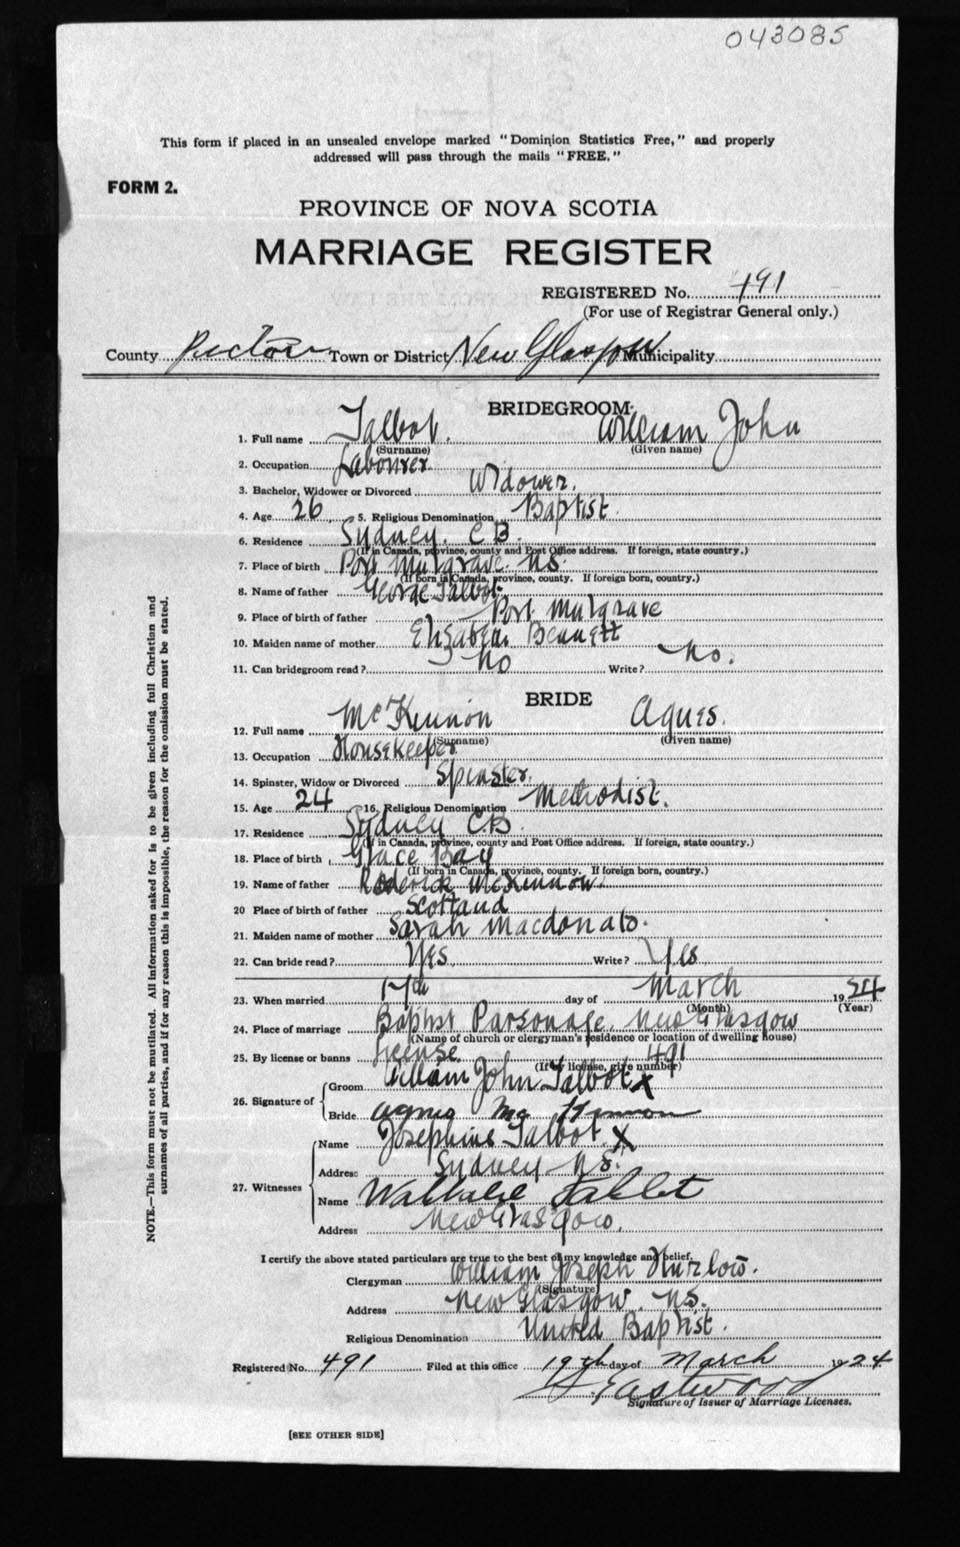 043085
This form if placed in an unsealed envelope marked "Dominion Statistics Free," and properly
addressed will pass through the mails "FREE."
FORM 2.
PROVINCE OF NOVA SCOTIA
MARRIAGE REGISTER
REGISTERED No. 491
(For use of Registrar General only.)
County Pictou Town or District New Glasgow Municipality
BRIDEGROOM
1. Full name Talbot. William John
(Surname) (Given name)
2. Occupation Labourer
3. Bachelor, Widower or Divorced Widower.
4. Age 26 5. Religious Denomination Baptist
6. Residence Sydney. C.B.
(If in Canada, province, county and Post Office address. If foreign, state country.)
7. Place of birth Port Mulgrave. N.S.
(If born in Canada, province, county. If foreign born, country.)
8. Name of father George Talbot
9. Place of birth of father Port Mulgrave
10. Maiden name of mother Elizabeth Bennett
11. Can bridegroom read? No Write? No.
BRIDE
12. Full name McKinnon Agnes.
(Surname) (Given name)
13. Occupation Housekeeper
14. Spinster, Widow or Divorced Spinster.
15. Age 24 16. Religious Denomination Methodist.
17. Residence Sydney C.B.
(If in Canada, province, county and Post Office address. If foreign, state country.)
18. Place of birth Glace Bay
(If born in Canada, province, county. If foreign born, country.)
19. Name of father Roderick McKinnon.
20 Place of birth of father Scotland
21. Maiden name of mother Sarah Macdonald.
22. Can bride read? Yes Write? Yes
23. When married 17th day of March 1924
(Month) (Year)
24. Place of marriage Baptist Parsonage. New Glasgow
(Name of church or clergyman's residence or location of dwelling house)
25. By license or banns License 491
(If by license, give number)
26. Signature of Groom William John Talbot X
Bride Agnes Mc Kinnon
27. Witnesses Name Josephine Talbot. X
Address Sydney N.S.
Name Wallace Talbot
Address New Glasgow.
I certify the above stated particulars are true to the best of my knowledge and belief.
Clergyman William Joseph
(Signature)
Address New Glasgow. N.S.
Religious Denomination United Baptist.
Registered No. 491 Filed at this office 19th day of March 1924
Eastwood
Signature of Issuer of Marriage Licenses.
[SEE OTHER SIDE]
NOTE.—This form must not be mutilated. All information asked for is to be given including full Christian and
surnames of all parties, and if for any reason this is impossible, the reason for the omission must be stated.